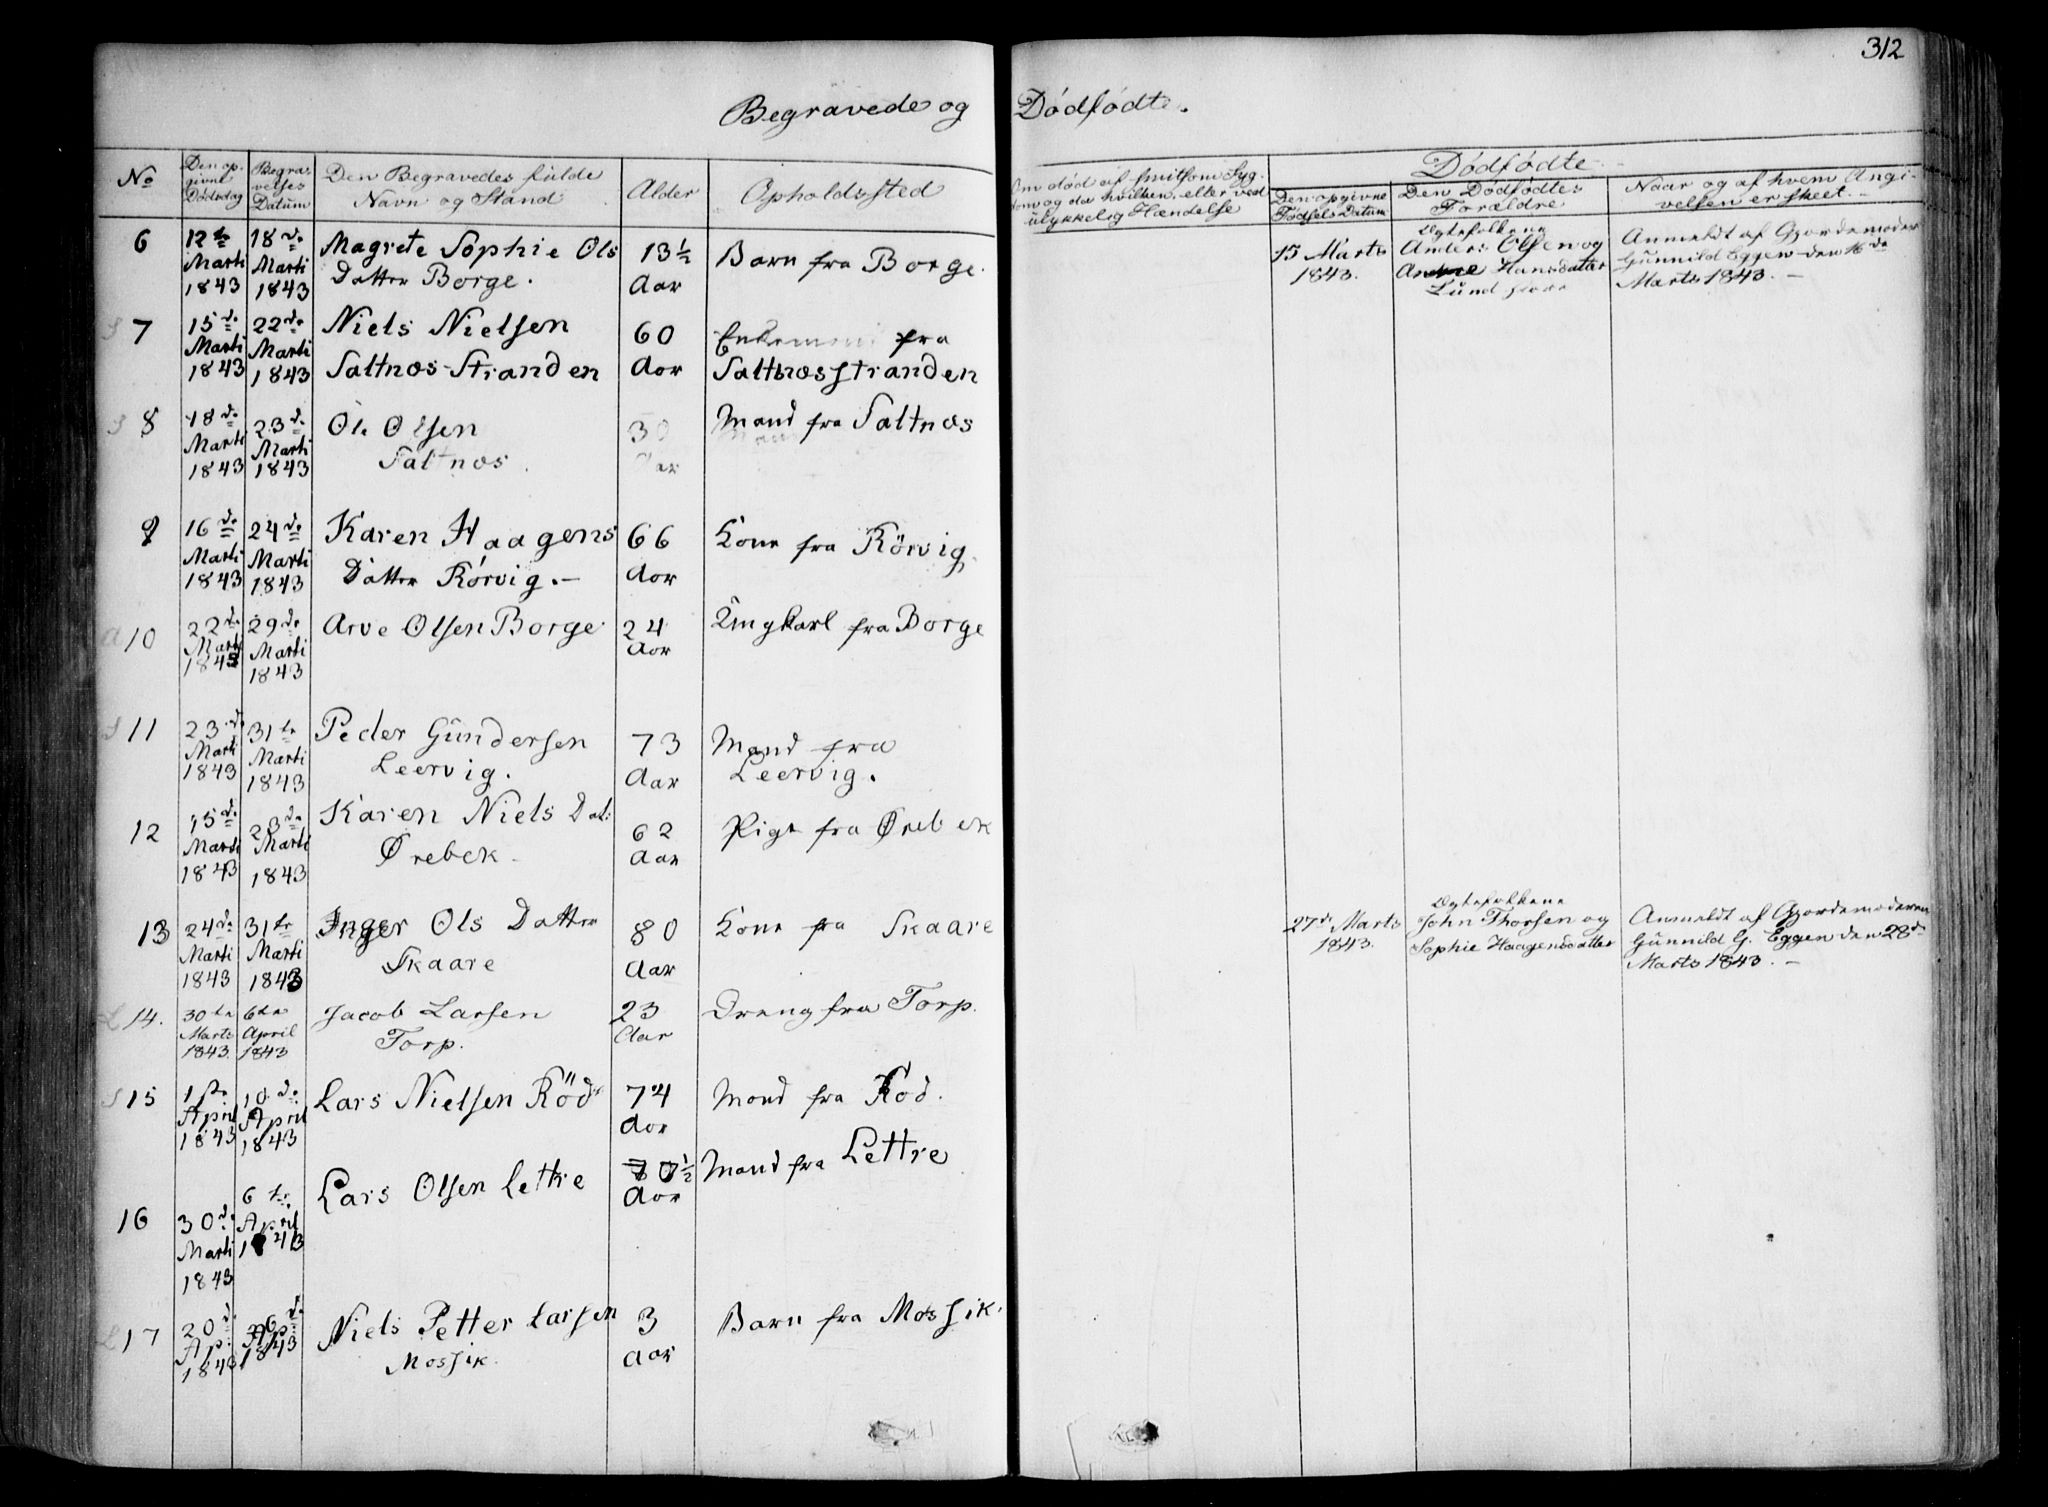 312
Begravede og Dødfødte.
No
Den op-
givne
Dødsdag
Begra-
velses
Datum
Den Begravedes fulde
Navn og Stand
Alder
Opholdssted
Om død af smitsom Syg-
dom og da hvilken, eller ved
ulykkelig Hændelse
Dødfødte
Den opgivne
Fødsels Datum
Den Dødfødtes
Forældre
Naar og af hvem Angi-
velsen er skeet.
6
12te
Marti
1843
18de
Marti
1843
Magrete Sophie Ols
Datter Borge.
13½
Aar
Barn fra Borge.
15 Marts
1843.
Ægtefolkene
Anders Olsen og
Hansdatter
Lund
Anmeldt af Gjordemoder
Gunnild Eggen den 16de
Marts 1843.
7
15de
Marti
1843
22de
Marti
1843
Niels Nielsen
Saltnæs-Stranden
60
Aar
fra
Saltnæsstranden
8
18de
Marti
1843
23de
Marti
1843
Ole Olsen
Saltnæs.
30
Aar
Mand fra Saltnæs
9
16de
Marti
1843
24de
Marti
1843
Karen Haagens
Datter Körvig.
66
Aar
Kone fra Körvig
10
22de
Marti
1843
29de
Marti
1843
Arve Olsen Borge
24
Aar
Ungkarl fra Borge
11
23de
Marti
1843
31te
Marti
1843
Peder Gundersen
Leervig.
73
Aar
Mand fra
Leervig.
12
15de
Marti
1843
23de
Marti
1843
Karen Niels Dat:
Ørebek
62
Aar
Pige fra Ørebek
13
24de
Marti
1843
31te
Marti
1843
Inger Ols Datter
Skaare
80
Aar
Kone fra Skaare
27de Marts
1843.
Ægtefolkene
John Thorsen og
Sophie Haagensdatter
Anmeldt af Gjordemoderen
Gunnild G. Eggen den 28de
Marts 1843.
14.
30te
Marts
1843.
6te
April
1843
Jacob Larsen
Torp.
23
Aar
Dreng fra Torp.
15
1ste
April
1843
10de
April
1843
Lars Nielsen Röd
74
Aar
Mand fra Röd.
16
30de
Marti
1843
6te
April
1843
Lars Olsen Lettre
80½
Aar
Mand fra Lettre
17
20de
Ap:
1843
26de
Ap:
1843
Niels Petter Larsen
Mossik.
3
Aar
Barn fra Mossik.